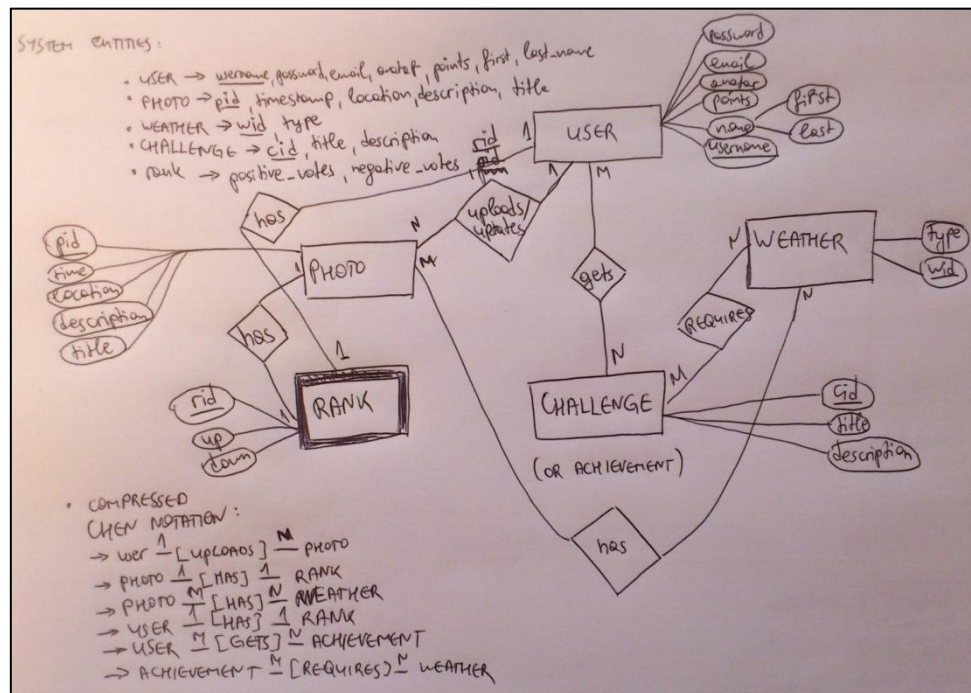 SYSTEM ENTITIES:
• USER → username, password, email, avatar, points, first, last_name
• PHOTO → pid, timestamp, location, description, title
• WEATHER → wid, type
• CHALLENGE → cid, title, description
• rank → positive_votes, negative_votes, rid
password
email
avatar
points
name
first
last
username
USER
1
1
M
has
uploads/
updates
N
M
gets
N
WEATHER
type
wid
N
N
REQUIRES
M
pid
time
location
description
title
PHOTO
1
has
1
1
RANK
rid
up
down
CHALLENGE
(OR ACHIEVEMENT)
cid
title
description
has
• COMPRESSED
CHEN NOTATION:
→ user 1 [UPLOADS] M PHOTO
→ PHOTO 1 [HAS] 1 RANK
→ PHOTO M [HAS] N WEATHER
→ USER 1 [HAS] 1 RANK
→ USER M [GETS] N ACHIEVEMENT
→ ACHIEVEMENT M [REQUIRES] N WEATHER